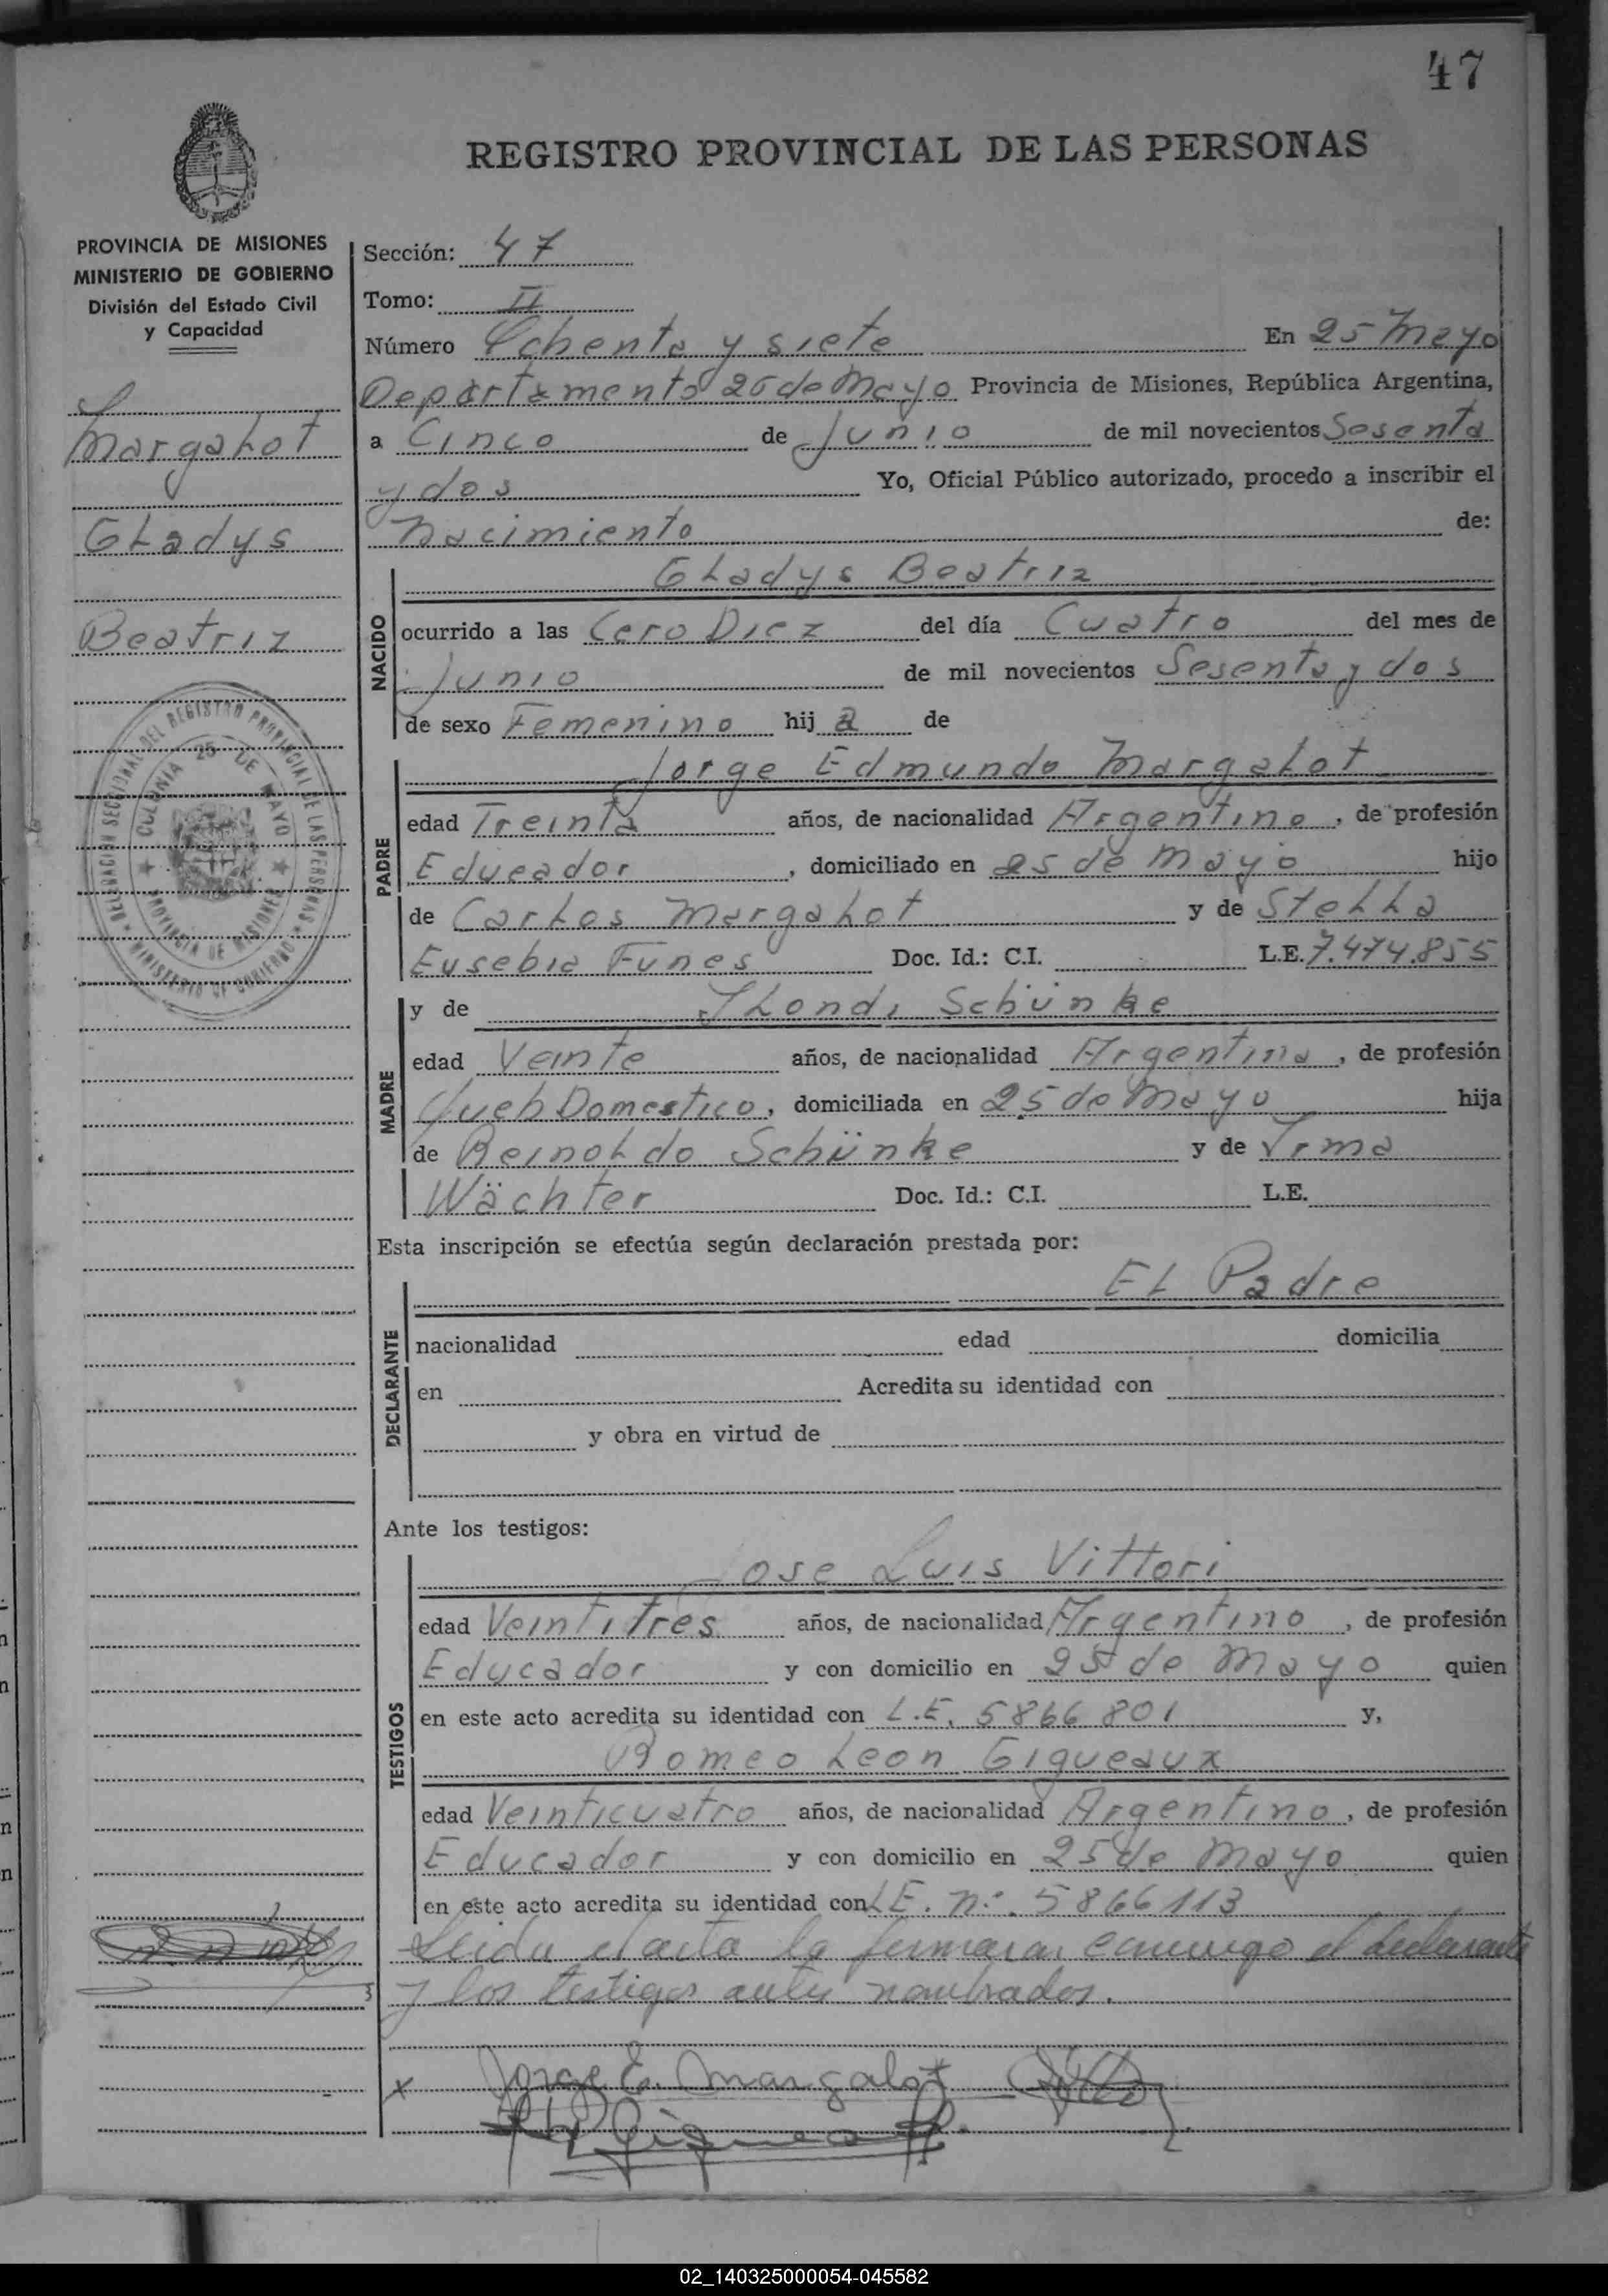 47
REGISTRO PROVINCIAL DE LAS PERSONAS
PROVINCIA DE MISIONES
MINISTERIO DE GOBIERNO
División del Estado Civil
y Capacidad
Margalot
Gladys
Beatriz
DELEGACION SECCIONAL DEL REGISTRO PROVINCIAL DE LAS PERSONAS
MINISTERIO DE GOBIERNO
COLONIA 25 DE MAYO
PROVINCIA DE MISIONES
Sección: 47
Tomo: II
Número Ochenta y siete En 25 Mayo
Departamento 25 de Mayo Provincia de Misiones, República Argentina,
a Cinco de Junio de mil novecientos Sesenta
y dos Yo, Oficial Público autorizado, procedo a inscribir el
Nacimiento de:
NACIDO
Gladys Beatriz
ocurrido a las Cero Diez del día Cuatro del mes de
Junio de mil novecientos Sesenta y dos
de sexo Femenino hij a de
PADRE
Jorge Edmundo Margalot
edad Treinta años, de nacionalidad Argentino, de profesión
Educador, domiciliado en 25 de Mayo hijo
de Carlos Margalot y de Stella
Eusebia Funes Doc. Id.: C.I. L.E. 7.474.855
MADRE
y de Ilondi Schünke
edad Veinte años, de nacionalidad Argentina, de profesión
Queh Domestico, domiciliada en 25 de Mayo hija
de Reinoldo Schünke y de Irma
Wächter Doc. Id.: C.I. L.E.
Esta inscripción se efectúa según declaración prestada por:
DECLARANTE
El Padre
nacionalidad edad domicilia
en Acredita su identidad con
y obra en virtud de
Ante los testigos:
TESTIGOS
Jose Luis Vittori
edad Veintitres años, de nacionalidad Argentino, de profesión
Educador y con domicilio en 25 de Mayo quien
en este acto acredita su identidad con L.E. 5866801 y,
Romeo Leon Gigueaux
edad Veinticuatro años, de nacionalidad Argentino, de profesión
Educador y con domicilio en 25 de Mayo quien
en este acto acredita su identidad con L.E. n: 5866113
Leida el acta la firmaran conmigo el declarante
y los testigos antes nombrados.
x Jorge E. Margalot
02_140325000054-045582